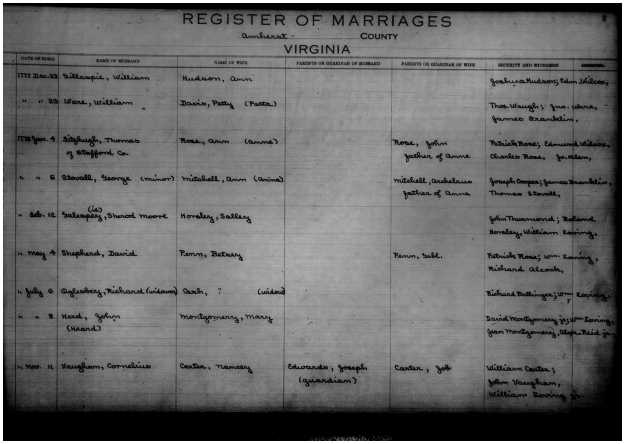 REGISTER OF MARRIAGES
Amherst COUNTY
VIRGINIA
DATE OF BOND NAME OF HUSBAND NAME OF WIFE PARENTS OR GUARDIAN OF HUSBAND PARENTS OR GUARDIAN OF WIFE SECURITY AND WITNESSES
1777 Dec. 23 Gillaspie, William Hudson, Ann Joshua Hudson; Edm Wilcox,
" " 23 Ware, William Davis, Patty (Patta) Thos. Waugh; Jno. Ware,
James Franklin,
1778 Jan. 4 Fitzhugh, Thomas Rose, Ann (Anne) Rose, John Patrick Rose; Edmund Wilcox,
of Stafford Co. father of Anne Charles Rose,
" " 5 Stovall, George (minor) Mitchell, Ann (Anna) Mitchell, Archelaus Joseph Cooper; James Franklin,
father of Anna Thomas Stovall,
" Feb. 12 Galaspey, Sherod Moore Horsley, Salley John Thurmond; Roland
Horsley, William Loving,
" May 4 Shepherd, David Penn, Betsey Penn, Patrick Rose; Wm. Loving,
Richard Alcock,
" July 6 Richard (widower) ? (widow) Richard Ballinger; Wm. Loving.
" " 8 Herd, John Montgomery, Mary David Montgomery jr; Wm Loving,
(Heard) Jean Montgomery, Alex. Reid jr.
" Nov. 11 Vaughan, Cornelius Carter, Nancey Edwards, Joseph Carter, Job William Carter;
(guardian) John Vaughan,
William Loving jr.